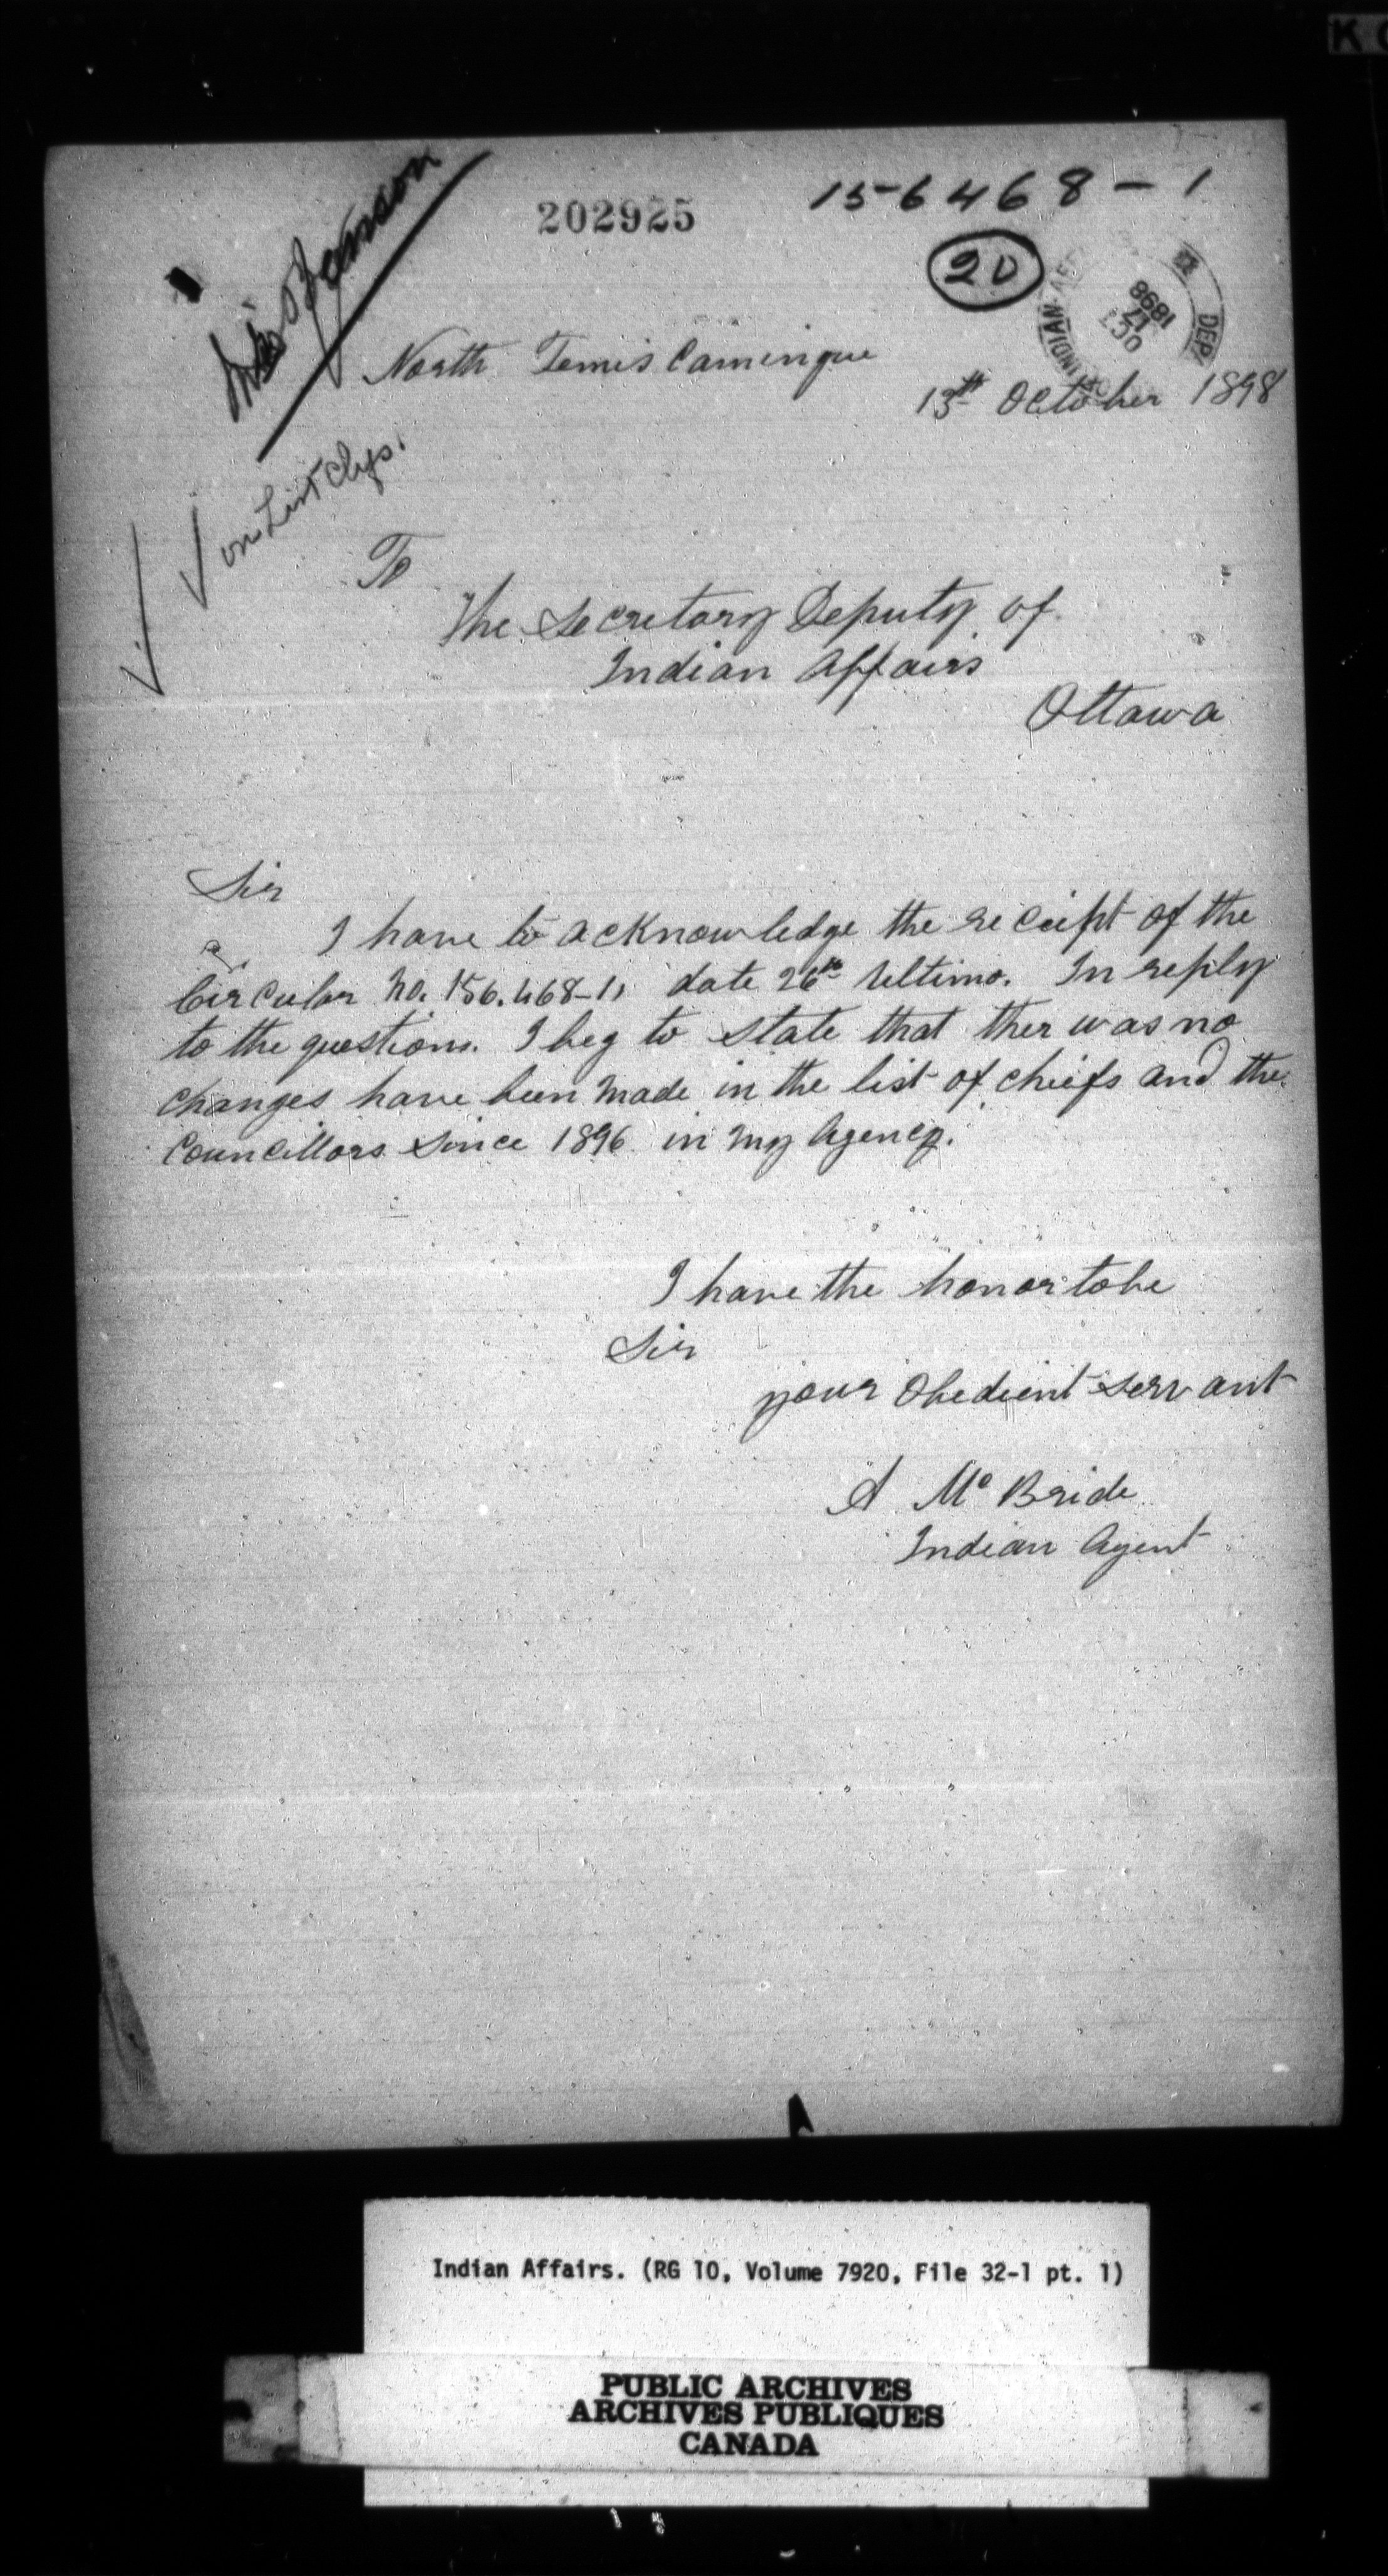 202925
156468-1
20
Miss Jamson
DEP. INDIAN AFF
OCT 17 1898
North Temis Camingue
13th October 1898
on List
To
The Secretary Deputy of
Indian Affairs
Ottawa
Sir
I have to acknowledge the receipt of the
Circular No. 156.468-1, date 26th Ultimo. In reply
to the questions. I beg to state that ther was no
changes have been made in the list of chiefs and the
Councillors since 1896 in my Agency.
I have the honor to be
Sir
your Obedient servant
A McBride
Indian Agent
Indian Affairs. (RG 10, Volume 7920, File 32-1 pt. 1)
PUBLIC ARCHIVES
ARCHIVES PUBLIQUES
CANADA